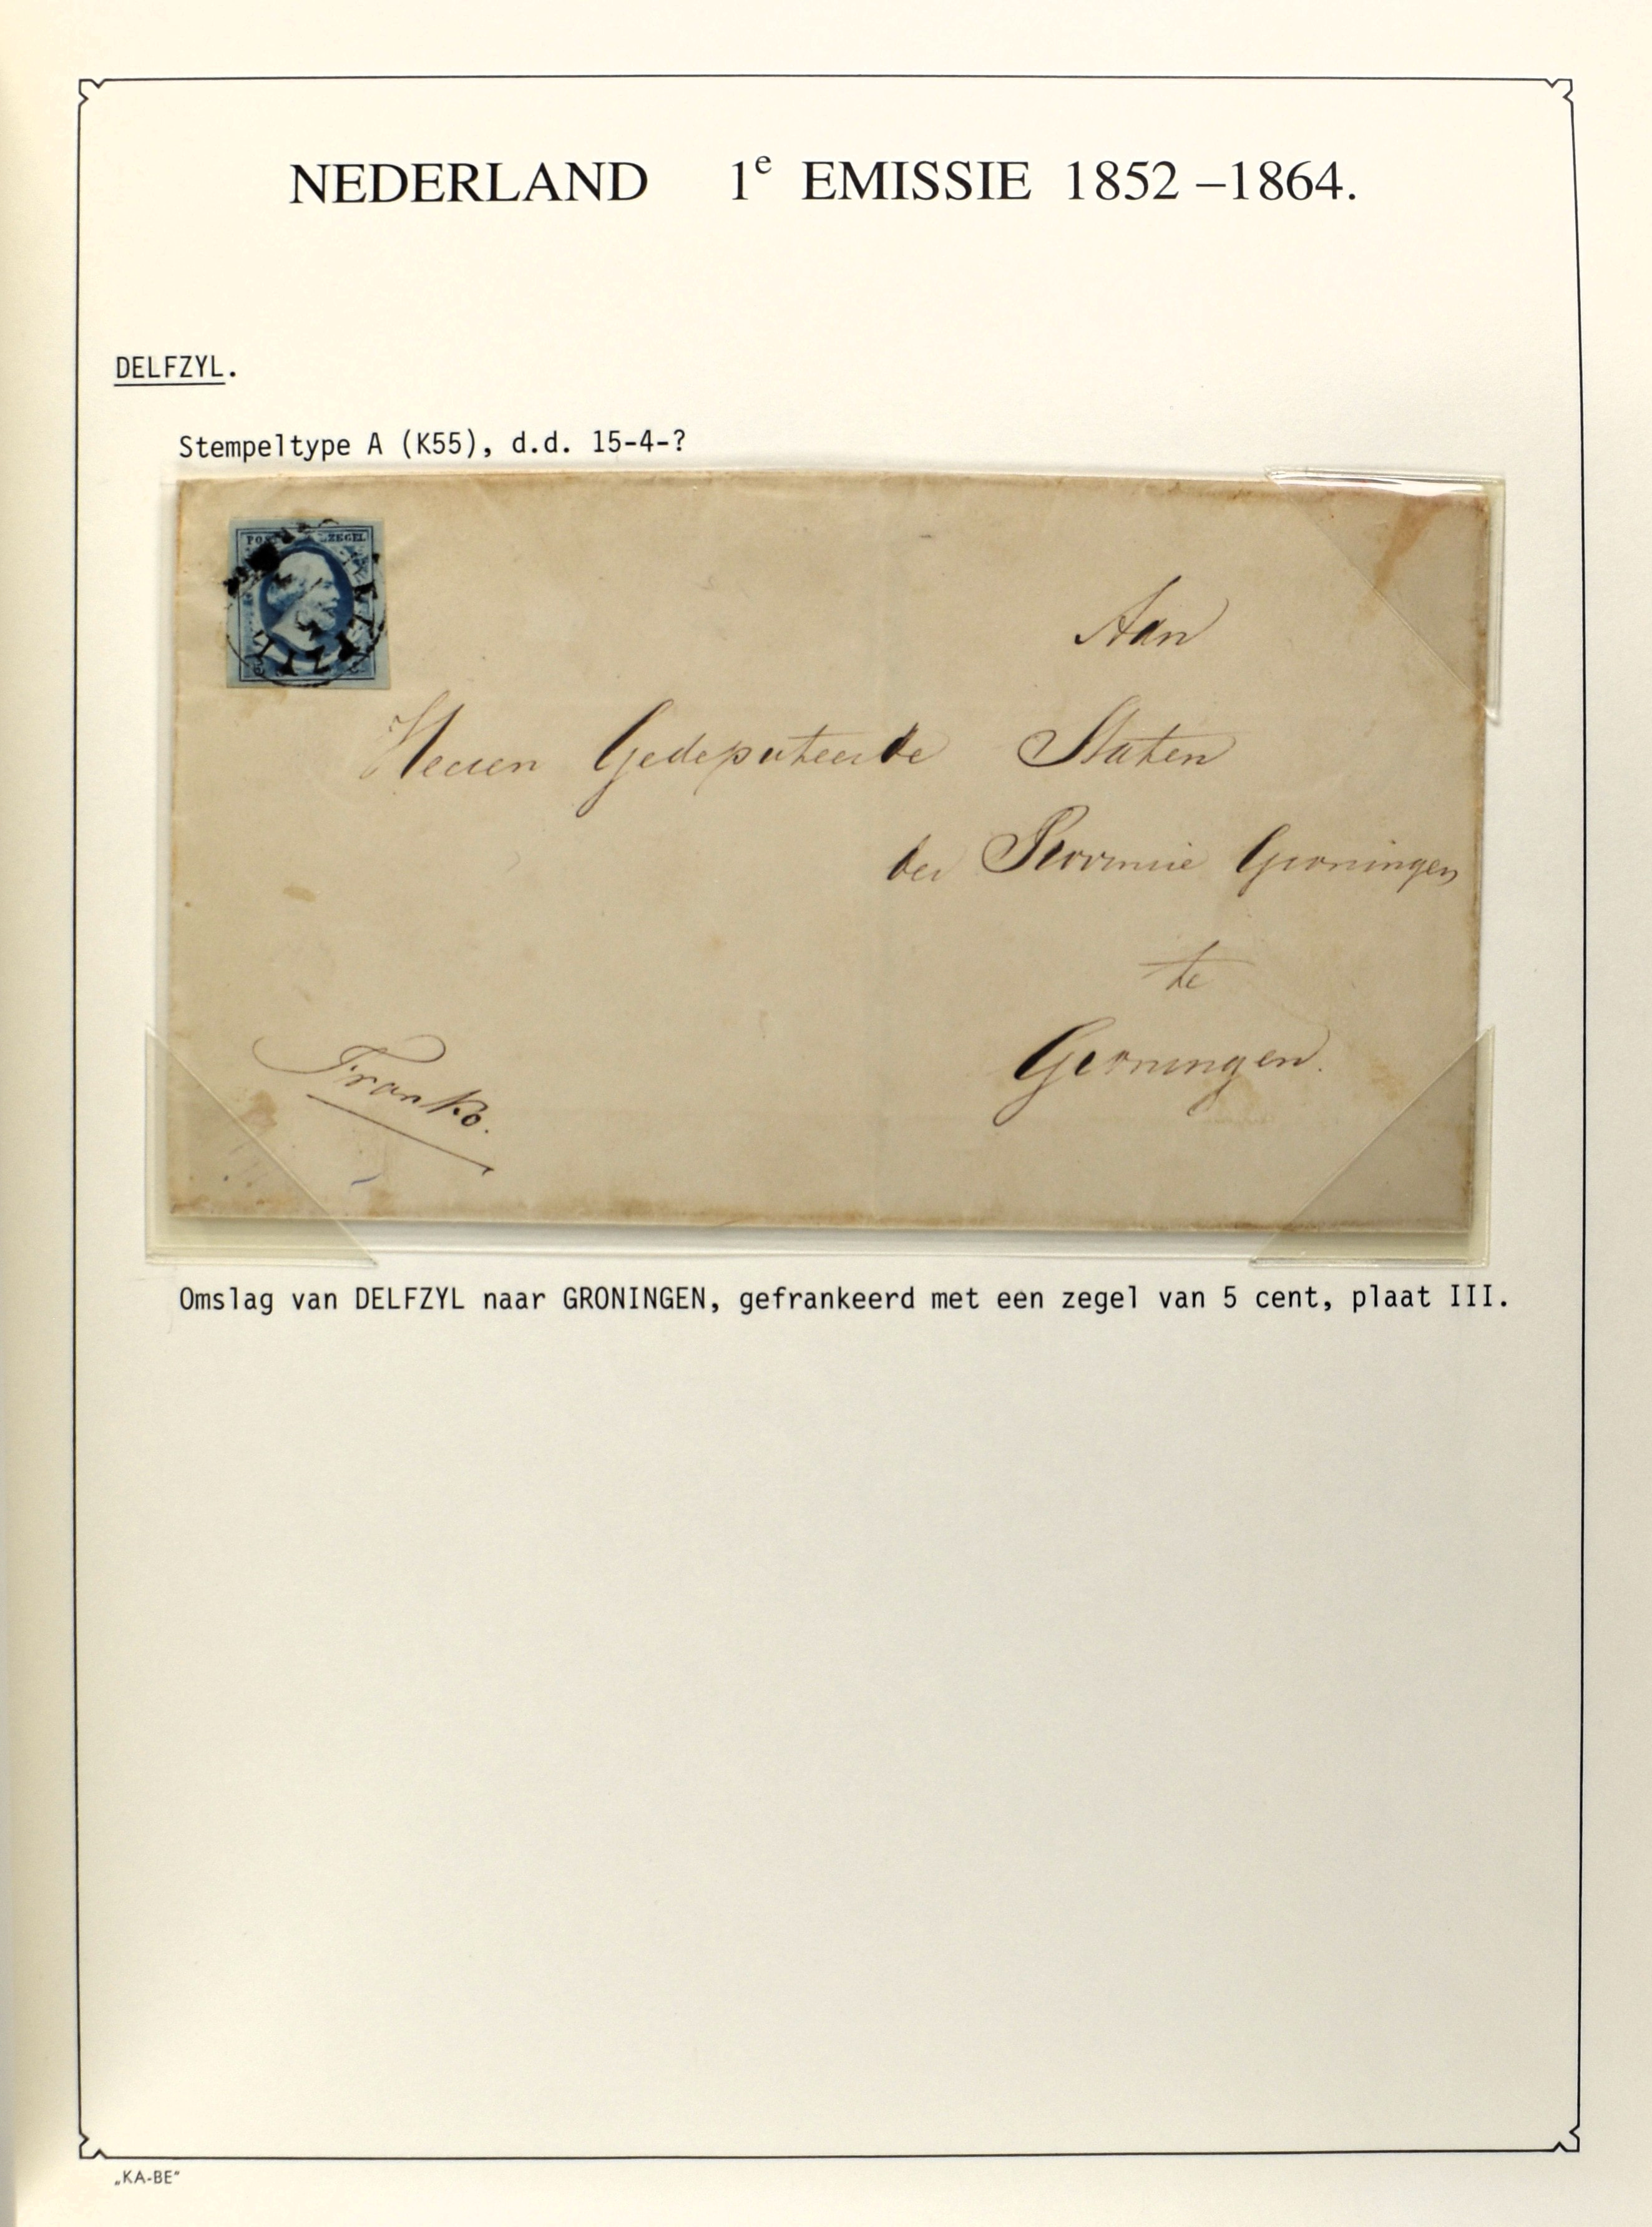 NEDERLAND 1e EMISSIE 1852 – 1864.
DELFZYL.
Stempeltype A (K55), d.d. 15-4-?
POSTZEGEL
Aan
Heeren Gedeputeerde Staten
der Provincie Groningen
te
Groningen.
Franko.
Omslag van DELFZYL naar GRONINGEN, gefrankeerd met een zegel van 5 cent, plaat III.
„KA-BE"